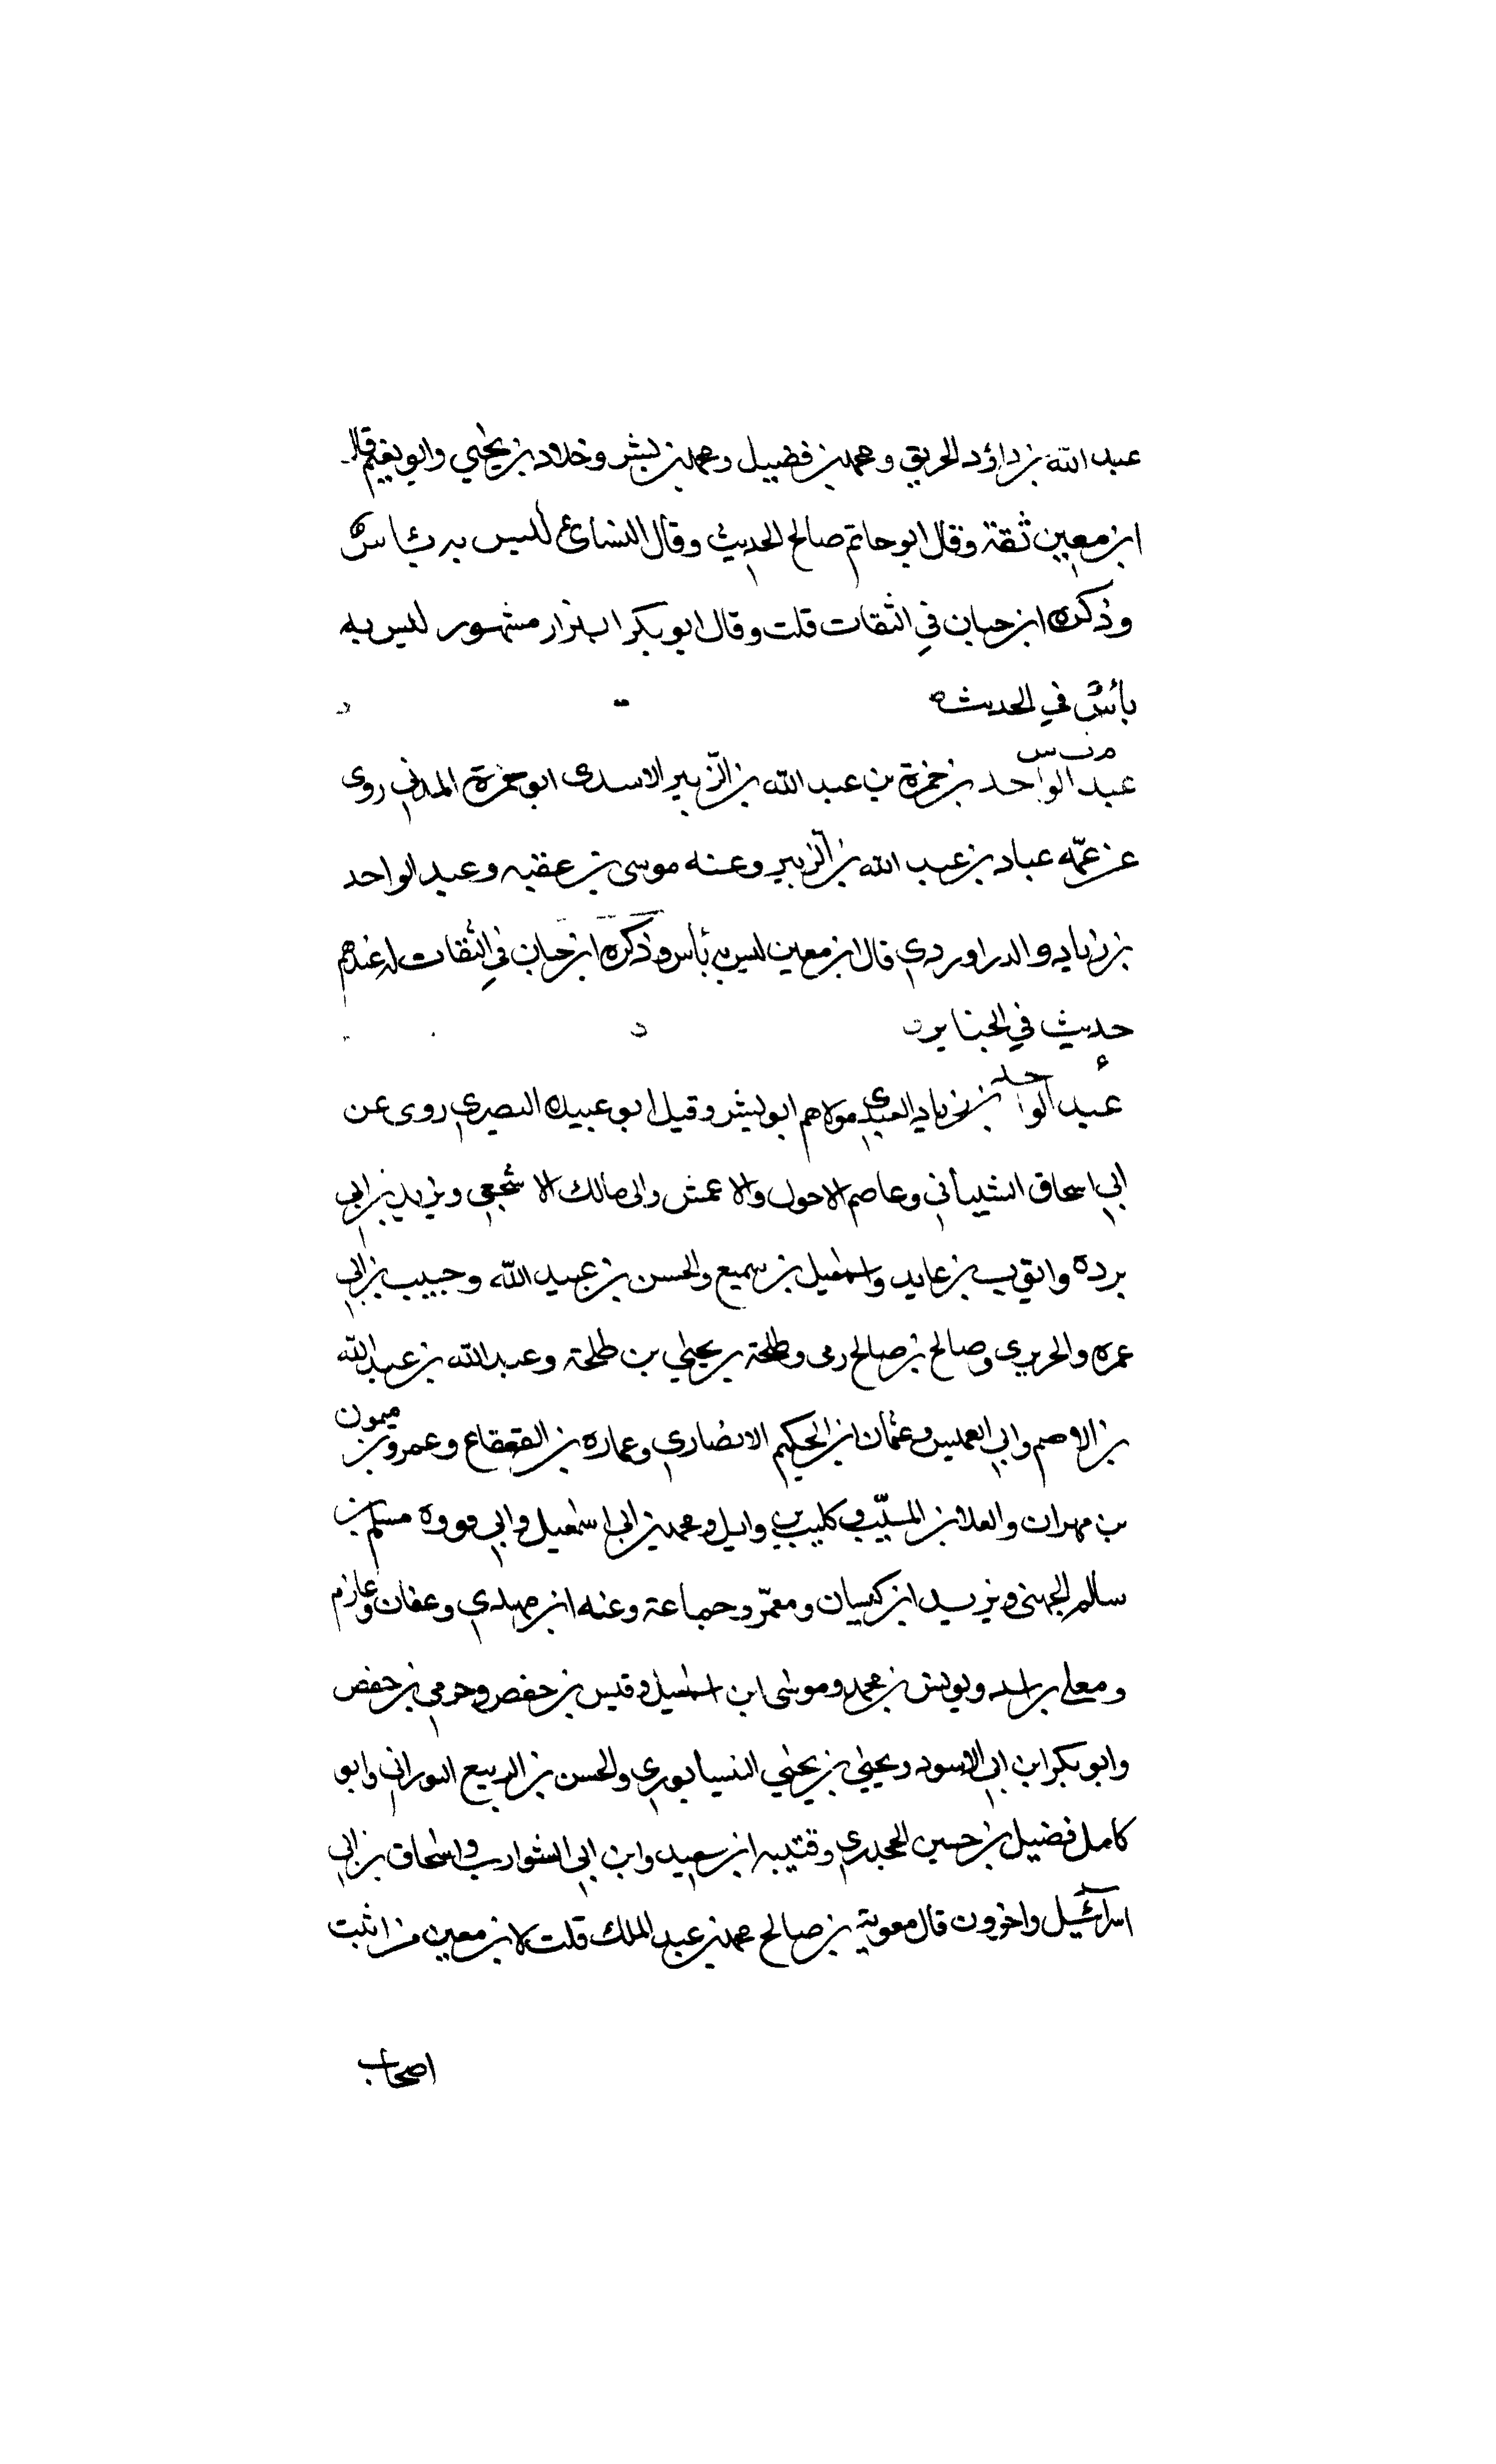 عبد الله بن داؤد الحريق ومحمد بن فضيل ومحمد بن بشر وخلاد بن يحيي وابو نعيم قال
ابن معين ثقة وقال ابو حاتم صالح الحديث وقال النسائ ليس به بئاس
وذكره ابن حبان في الثقات قلت وقال ابو بكر البزار مشهور ليس به
بأس في الحديث
م ت س
عبد الواحد بن حمزة بن عبد الله بن الزّبير الاسدى ابو حمزة المدني روى
عن عمّه عباد بن عبد الله بن الزبير وعنه موسى بن عقبه وعبد الواحد
بن زياد والدراوردي قال ابن معين ليس به بأس وذكره ابن حبان في الثقات له عندهم
حديث في الجنايز
ع
عبد الواحد بن زياد العبدي مولاهم ابو بشر وقيل ابو عبيده البصري روى عن
ابي اسحاق الشيباني وعاصم الاحول والاعمش وابى مالك الاشجعي ويزيد بن ابي
برده وايوب بن عايد واسمعيل بن سميع والحسن بن عبيد الله وحبيب بن ابي
عمره والحريرى وصالح بن صالح وطلحة بن يحيي بن طلحة وعبد الله بن عبد الله
بن الاصم وابي العميس وعثمان ابن الحكيم الانصاري وعماره بن القعقاع وعمرو بن ميمون
بن مهران والعلا بن المسيّب وكليب بن وايل ومحمد بن ابى اسمعيل وابي فروه مسلم بن
سالم الجهنى ويزيد ابن كيسان ومعمّر وجماعة وعنه ابن مهدي وعفان وعازم
ومعلى بن اسد ويونس بن محمد وموسى ابن اسمعيل وقيس بن حفص وحرمي بن حفص
وابو بكر ابن ابي الاسود ويحيي بن يحيي النيسابوري والحسن بن الربيع البوراني وابو
كامل فضيل بن حسين الجحدري وقتيبه ابن سعيد وابن ابي الشوارب واسحاق بن ابي
اسرآئيل واخرون قال معوية بن صالح محمد بن عبد الملك قلت لابن معين من اثبت
اصحاب